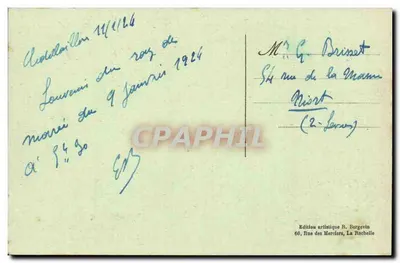 Chatelaillon 11/1/24
Souvenir du raz de
marée du 9 Janvier 1924
à 5h 30
Mr G. Brisset
54 rue de la
Niort
(2-Sèvres)
CPAPHIL
Edition artistique R. Bergevin
60, Rue des Merciers, La Rochelle